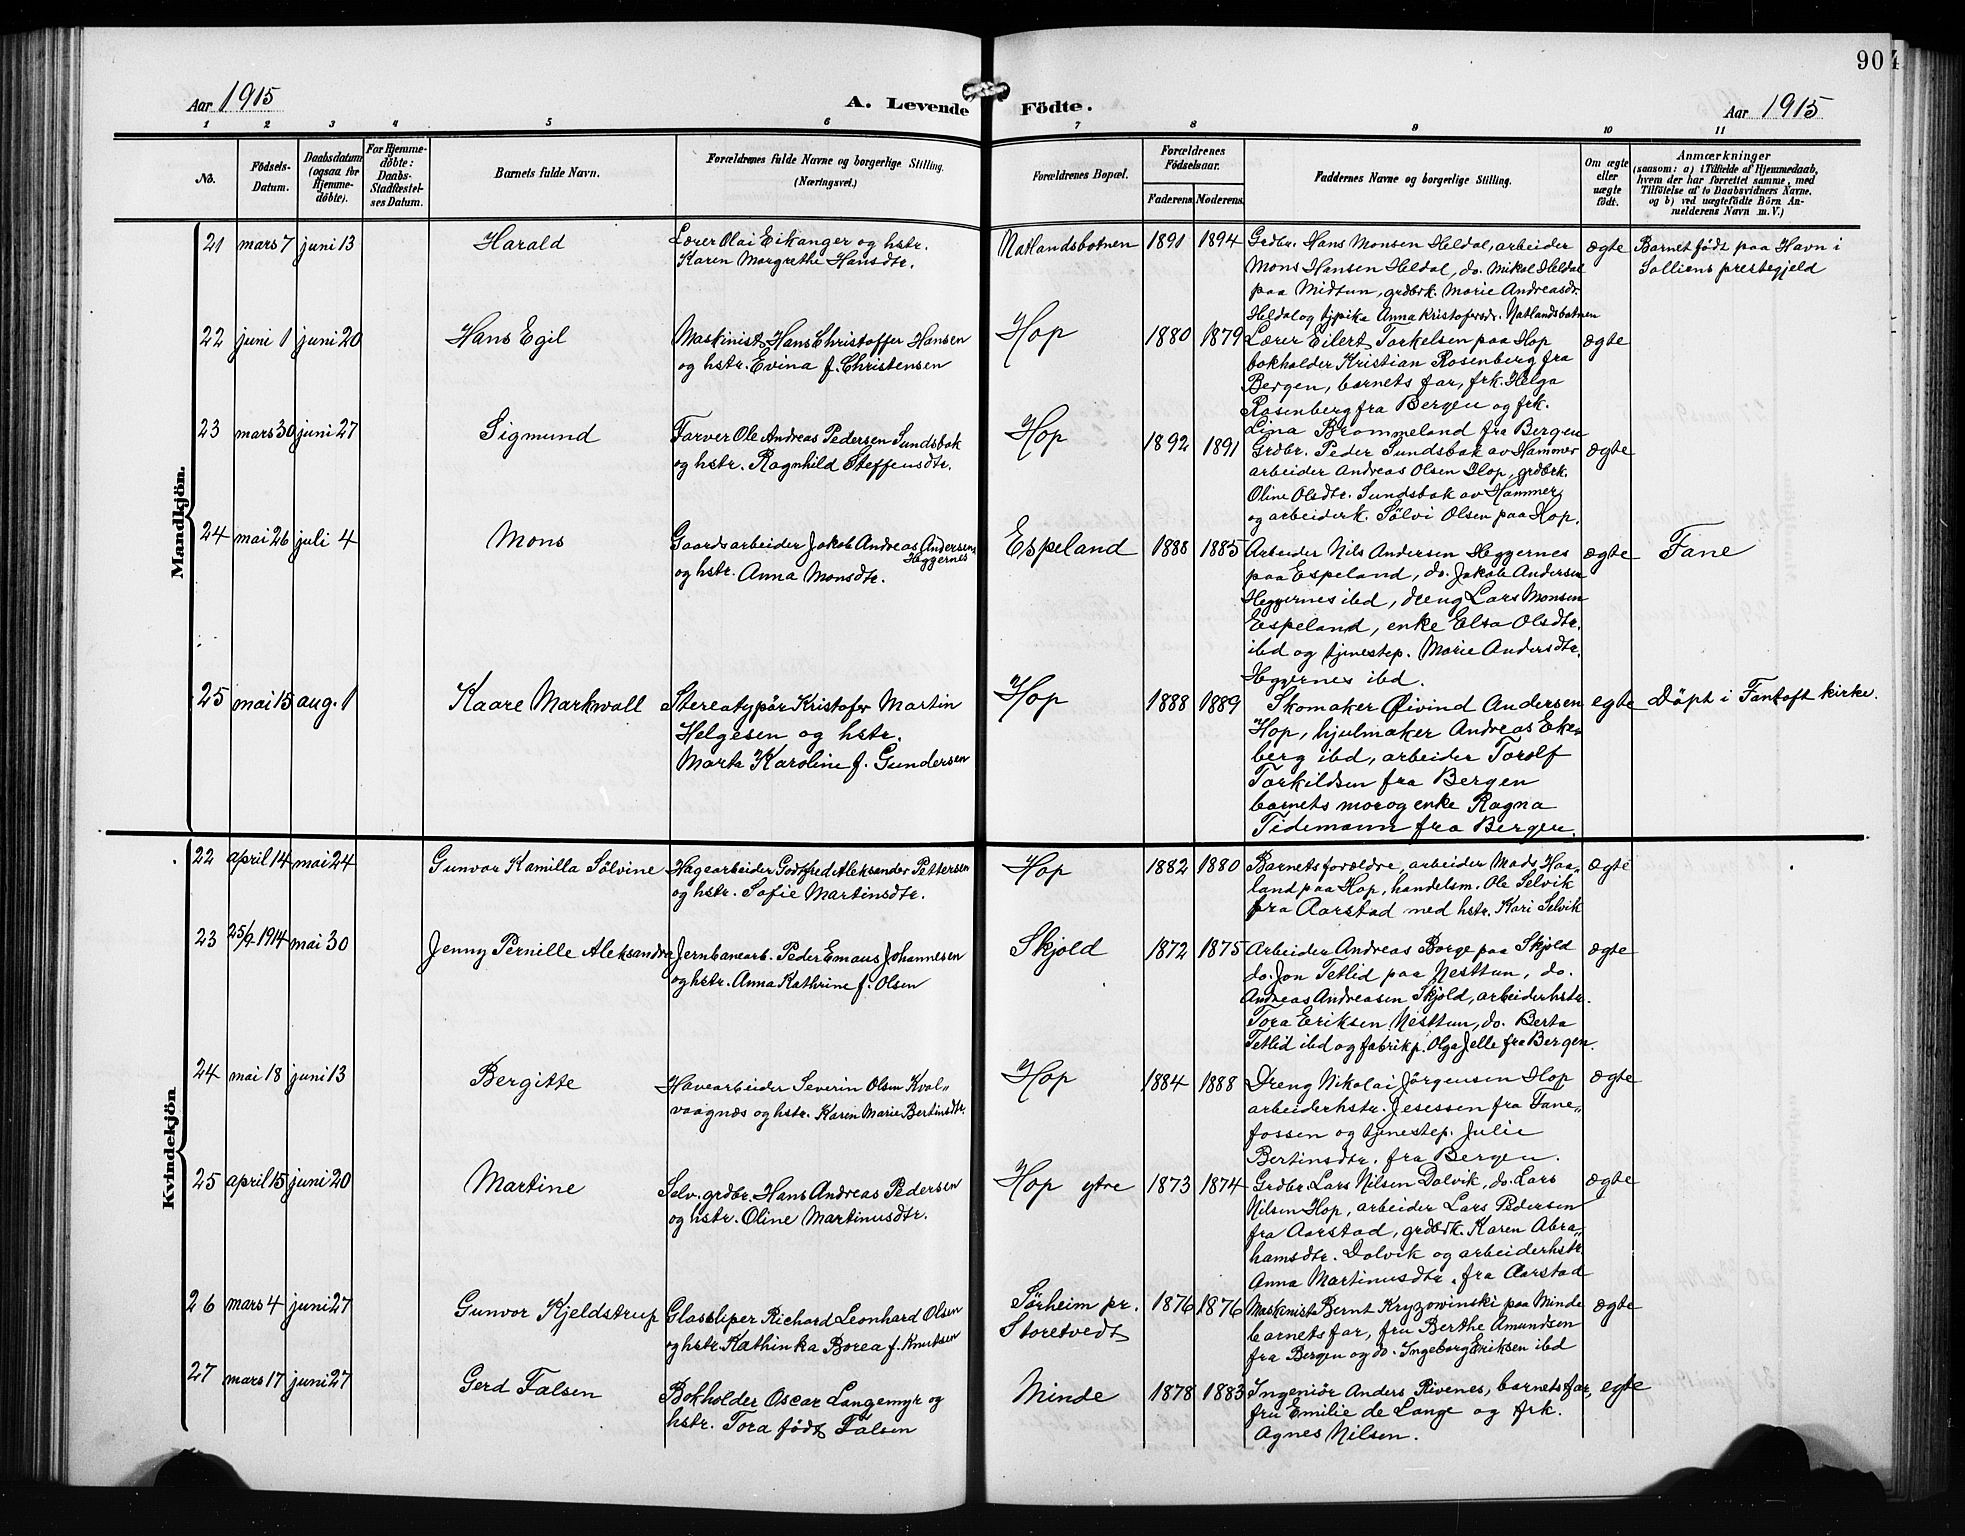 90
Aar 1915
A. Levende Födte.
Aar 1915
1 2 3 4 5 6 7 8 9 10 11
No.
Födsels-
Datum.
Daabsdatum
(ogsaa for
Hjemme-
döbte).
For Hjemme-
döbte:
Daabs-
Stadfæstel-
ses Datum.
Barnets fulde Navn.
Forældrenes fulde Navne og borgerlige Stilling.
(Næringsvei.)
Forældrenes Bopæl.
Forældrenes
Födselsaar.
Faderens Moderens.
Faddernes Navne og borgerlige Stilling.
Om ægte
eller
uægte
födt.
Anmærkninger
(saasom: a) i Tilfælde af Hjemmedaab,
hvem der har forrettet samme, med
Tilföielse af to Daabsvidners Navne,
og b) ved uægtefödte Börn An-
melderens Navn m.V.)
Mandkjön.
21 mars 7 juni 13
Harald
Lærer Olai Eikanger og hstr.
Karen Margrethe Hansdtr.
Natlandsbotnen
1891 1894
Grdbr. Hans Monsen Heldal, arbeider
Mons Hansen Heldal, do. Mikal Heldal
paa Midtun, grdbrk. Marie Andreasdr.
Heldal og tjpika Anna Kristofersdr. Natlandsbotnen
ægte
Barnet født paa Havn i
Solliens prestegjeld
22 juni 1 juni 20
Hans Egil
Maskinist Hans Christoffer Hansen
og hstr. Evina f. Christensen
Hop
1880 1879
Lærer Eilert Torkelsen paa Hop
bokholder Kristian Rosenberg fra
Bergen, barnets far, frk. Helga
Rosenberg fra Bergen og frk.
Lina Brommeland fra Bergen
ægte
23 mars 30 juni 27
Sigmund
Farver Ole Andreas Pedersen Sundsbak
og hstr. Ragnhild Steffensdtr.
Hop
1892 1891
Grdbr. Peder Sundsbak av Hammer
arbeider Andreas Olsen Hop, grdbrk.
Oline Olsdtr. Sundsbak av Hammer
og arbeiderk. Sølvi Olsen paa Hop.
ægte
24 mai 26 juli 4
Mons
Gaardsarbeider Jakob Andreas Andersen
Heggernes
og hstr. Anna Monsdtr.
Espeland
1888 1885
Arbeider Nils Andersen Heggernes
paa Espeland, do. Jakob Andersen
Heggernes ibd, dreng Lars Monsen
Espeland, enke Elsa Olsdtr.
ibd og tjenestep. Marie Andersdtr.
Heggernes ibd.
ægte
Fane
25 mai 15 aug. 1
Kaare Markwall
Stereotypör Kristofer Martin
Helgesen og hstr.
Marta Karoline f. Gundersen
Hop
1888 1889
Skomaker Øivind Andersen
Hop, hjulmaker Andreas Eke-
berg ibd, arbeider Torolf
Torkildsen fra Bergen
barnets mor og enke Ragna
Tidemann fra Bergen.
egte
Döpt i Fantoft kirke.
Kvindekjön
22 april 14 mai 24
Gunvor Kamilla Sölvine
Hagearbeider Godtfred Aleksander Pettersen
og hstr. Sofie Martinsdtr.
Hop
1882 1880
Barnets forældre, arbeider Mads Haa-
land paa Hop, handelsm. Ole Selvik
fra Aarstad med hstr. Kari Selvik
ægte
23 25/2 1914 mai 30
Jenny Pernille Aleksandra
Jernbanearb. Peder Emaus Johannesen
og hstr. Anna Kathrine f. Olsen
Skjold
1872 1875
Arbeider Andreas Borge paa Skjold
do. Jon Tetlid paa Nesttun, do.
Andreas Andreasen Skjold, arbeiderhstr.
Tora Eriksen Nesttun, do. Berta
Tetlid ibd og fabrikp. Olga Jelle fra Bergen.
ægte
24 mai 18 juni 13
Bergitte
Havearbeider Severin Olsen Kval-
vaagnæs og hstr. Karen Marie Bertinsdtr.
Hop
1884 1888
Dreng Nikolai Jørgensen Hop
arbeiderhstr. Jesessen fra Fane-
fossen og tjenestep. Julie
Bertinsdtr. fra Bergen.
ægte
25 april 15 juni 20
Martine
Selv. grdbr. Hans Andreas Pedersen
og hstr. Oline Martinusdtr.
Hop ytre
1873 1874
Grdbr. Lars Nilsen Dalvik, do. Lars
Nilsen Hop, arbeider Lars Pedersen
fra Aarstad, grdbrk. Karen Abra-
hamsdtr. Dalvik og arbeiderhstr.
Anna Martinusdtr. fra Aarstad
ægte
26 mars 4 juni 27
Gunvor Kjeldstrup
Glassliper Richard Leonhard Olsen
og hstr. Kathinka Borea f. Knutsen
Sørheim pr.
Storetvedt
1876 1876
Maskinista Bernt Kryzowinski paa Minde
barnets far, fru Berthe Amundsen
fra Bergen og do. Ingeborg Eriksen ibd
ægte
27 mars 17 juni 27
Gerd Falsen
Bokholder Oscar Langemyr og
hstr. Tora født Falsen
Minde
1878 1883
Ingeniør Anders Rivenes, barnets far,
fru Emilie de Lange og frk.
Agnes Nilsen.
egte